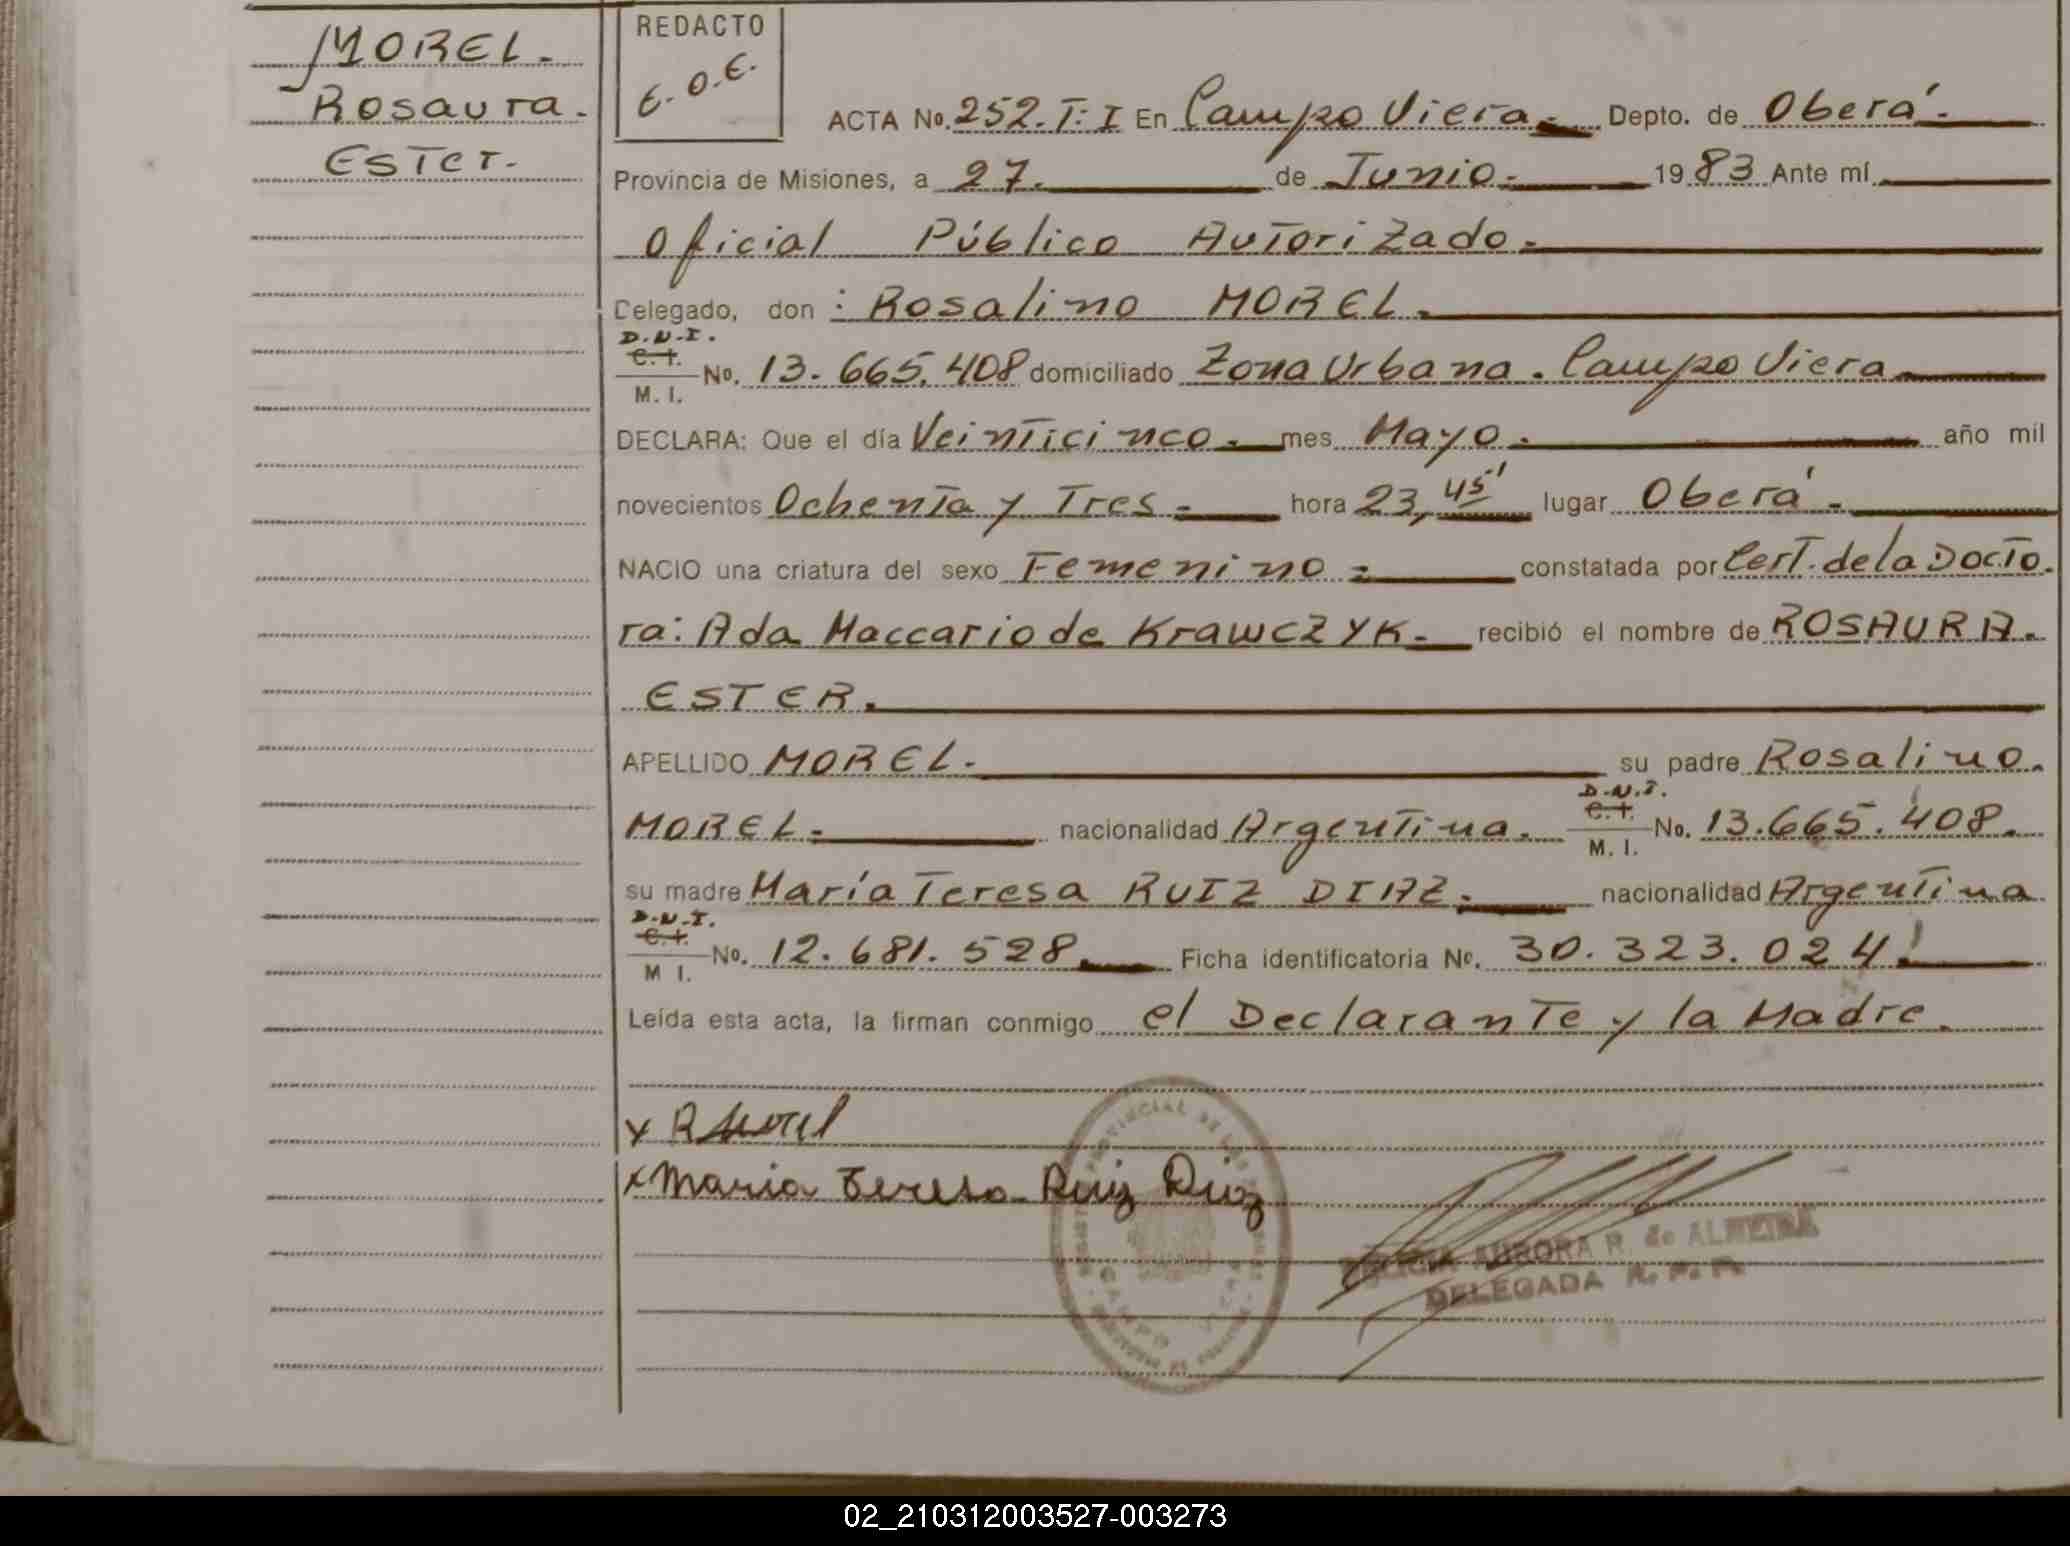 MOREL.
Rosaura.
Ester.
REDACTO
E.O.E.
ACTA No. 252. T: I En Campo Viera.- Depto. de Oberá.-
Provincia de Misiones, a 27. de Junio.- 1983 Ante mí
Oficial Público Autorizado.-
Delegado, don : Rosalino MOREL.
D.N.I.
C. I.
M. I. No. 13.665.408 domiciliado Zona Urbana. Campo Viera
DECLARA: Que el día Veinticinco.- mes Mayo.- año mil
novecientos Ochenta y Tres.- hora 23,45' lugar Oberá.-
NACIO una criatura del sexo Femenino.- constatada por Cert. de la Docto.
ra: Ada Maccario de KRAWCZYK.- recibió el nombre de ROSAURA.
ESTER.
APELLIDO MOREL.- su padre Rosalino.
D.N.I.
MOREL.- nacionalidad Argentina. C. I. No. 13.665.408.
M. I.
su madre María Teresa RUIZ DIAZ.- nacionalidad Argentina
D.N.I.
C. I.
M I. No. 12.681.528. Ficha identificatoria No. 30.323.024.
Leída esta acta, la firman conmigo el Declarante y la Madre.
x R Morel
x Maria Teresa Ruiz Diaz
AURORA R. de ALMEIDA
DELEGADA
CAMPO
02_210312003527-003273